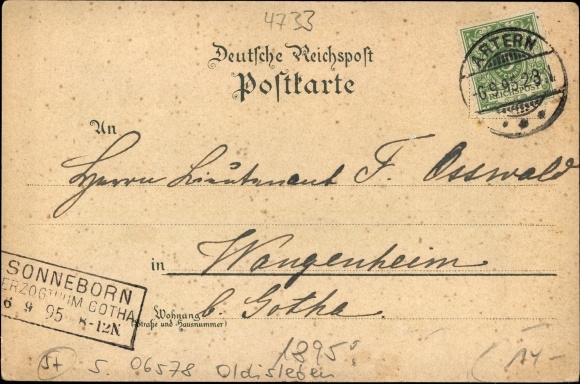 4733
Deutsche Reichspost
Postkarte
ARTERN
6.9.95.2-3.N.
An
Herrn Lieutenant F. Osswald
in Wangenheim
b. Gotha.
Wohnung
(Straße und Hausnummer)
SONNEBORN
HERZOGTHUM GOTHA
6 9 95 8-12N
1895
S. 06578 Oldisleben
14-